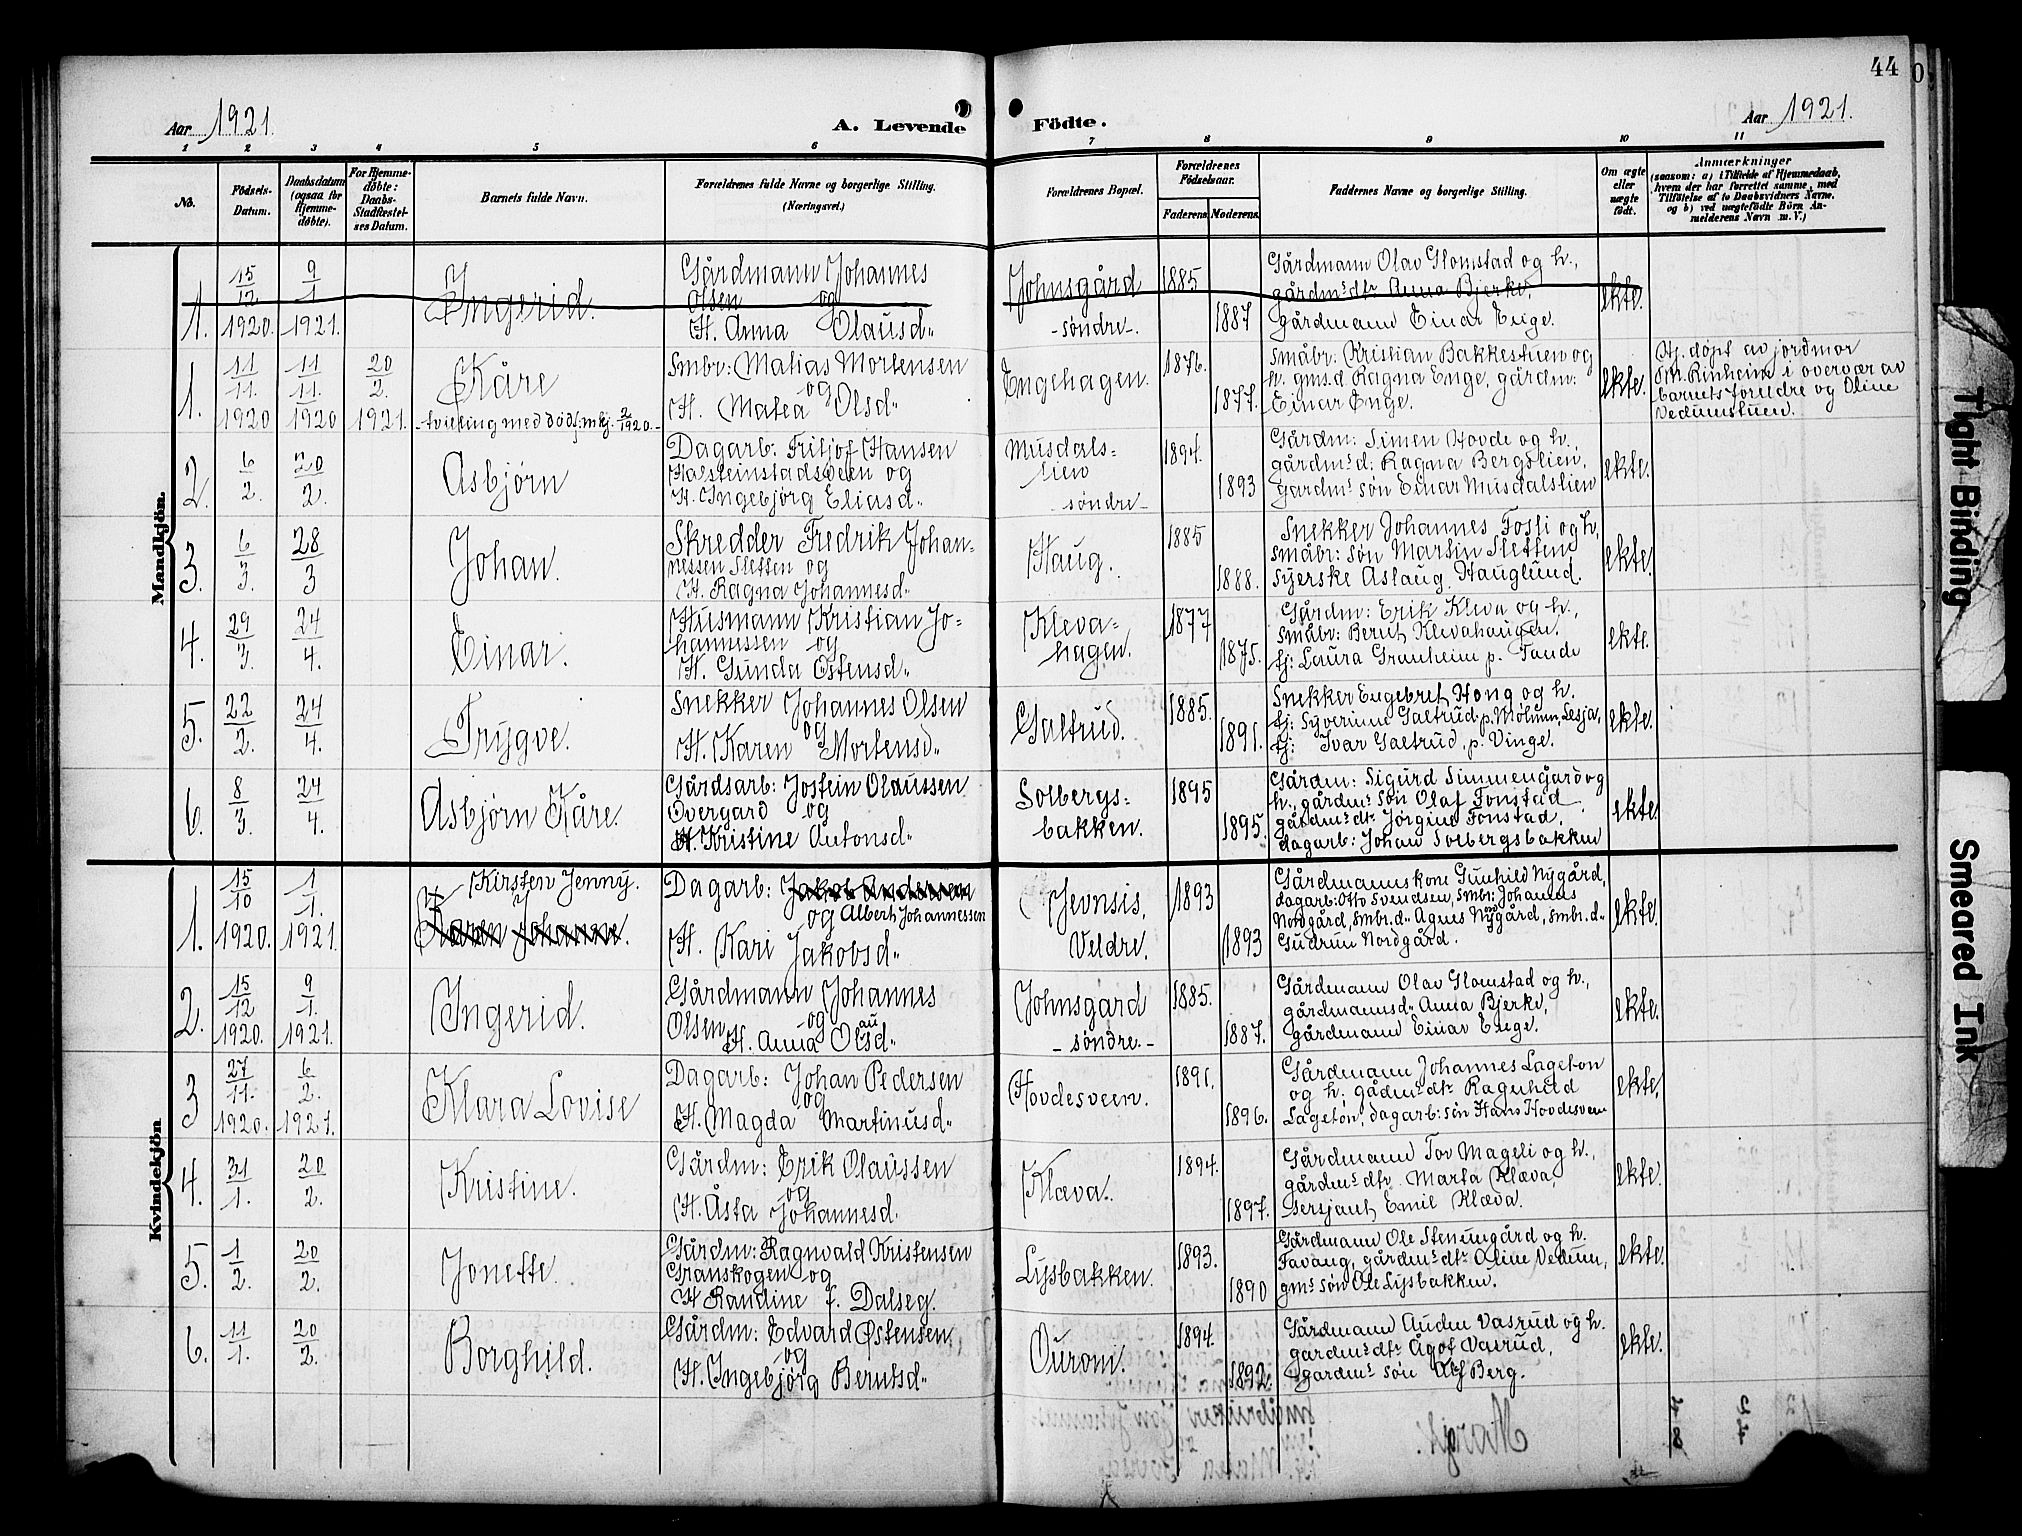 44
Aar 1921.
A. Levende Födte.
Aar 1921.
1 2 3 4 5 6 7 8 9 10 11
No.
Födsels-Datum.
Daabsdatum (ogsaa for Hjemmedöbte).
For Hjemmedöbte: Daabs-Stadfæstelses Datum.
Barnets fulde Navn.
Forældrenes fulde Navne og borgerlige Stilling.
(Næringsvei.)
Forældrenes Bopæl.
Forældrenes Födselsaar.
Faderens Moderens
Faddernes Navne og borgerlige Stilling.
Om ægte eller uægte födt.
Anmærkninger
(saasom: a) i Tilfælde af Hjemmedaab, hvem der har forrettet samme, med Tilföielse af to Daabsvidners Navne, og b) ved uægtefödte Börn Anmelderens Navn m. V.)
Mandkjön.
1. 15/12 1920 9/1 1921. Ingerid.
Gårdmann Johannes
Olsen og
H. Anna Olausd"
Johnsgård
-søndre-.
1885 1887
Gårdmann Olav Glomstad og h.,
gårdms dtr Anna Bjerke,
gårdmann Einar Enge.
ekte.
1. 11/11. 1920 11/11. 1920 20/2. 1921. Kåre
-tvilling med dødf: mkj. 2/1920.-
Smbr: Matias Mortensen
og
H. Matea Olsd"
Engehagen.
1876. 1877.
Småbr: Kristian Bakkestuen og
h. gms.d Ragna Enge, gårdm:
Einar Enge.
ekte.
Hj. døpt av jordmor
M. Rinheim i overvær av
barnets foreldre og Oline
Vedumstuen.
2. 6/2. 20/2. Asbjørn
Dagarb: Fritjof Hansen
Holsteinstadsveen og
H. Ingebjørg Eliasd"
Musdals=
lien
søndre-
1894. 1893
Gårdm: Simen Hovde og h.
gårdms d: Ragna Bergslien,
gardms søn Einar Musdalslien
ekte.
3. 6/3. 28/3 Johan.
Skredder Fredrik Johan-
nessen Sletten og
H. Ragna Johannesd"
Haug.
1885 1888.
Snekker Johannes Fosli og h,
småbr: søn Martin Sletten
syerske Aslaug Hauglund.
ekte.
4. 29/3. 24/4. Einar.
Husmann Kristian Jo=
hannessen og
H. Gunda Østensd"
Kleva=
hagen.
1877 1875.
Gårdm: Erik Kleva og h.,
småbr: Bernt Klevahaugen.
tj: Laura Granheim p. Tande
ekte.
5. 22/2. 24/4. Trygve.
Snekker Johannes Olsen
og
H. Karen Mortensd"
Galtrud.
1885. 1891.
Snekker Engebret Hong og h.
tj: Syverine Galtrud p. Mølmen, Lesja,
tj: Ivar Galtrud, p. Vinge.
ekte.
6. 8/3. 24/4. Asbjørn Kåre.
Gårdsarb: Jostein Olaussen
Øvergård og
H. Kristine Antonsd"
Solbergs=
bakken.
1895 1895.
Gårdm: Sigurd Simmengard og
h., gårdms søn Olaf Fonstad
gårdms dtr Jørgine Fonstad,
dagarb: Johan Solbergsbakken
ekte
Kvindekjön
1. 15/10 1920. 1/1. 1921. Kirsten Jenny.
Karen Johanne.
Dagarb: Jakob Andersen
og Albert Johannessen
H. Kari Jakobsd"
Jevnsis,
Veldre.
1893 1893
Gårdmannskone Gunhild Nygård,
dagarb: Otto Svendsen, smbr: Johannes
Nordgård, smbr. d" Agnes Nygård, smbr. d"
Gudrun Nordgård.
ekte.
2. 15/12 1920. 9/1. 1921. Ingerid.
Gårdmann Johannes
Olsen og
H. Anna Olausd"
Johnsgård
-søndre.-
1885. 1887.
Gårdmann Olav Glomstad og h.,
gårdmannsd" Anna Bjerke,
gårdmann Einar Enge.
ekte.
3 27/11. 1920. 6/2. 1921. Klara Lovise
Dagarb: Johan Pedersen
og
H. Magda Martinusd"
Hovdesveen.
1891. 1896.
Gårdmann Johannes Lageton
og h. gådms dtr Ragnhild
Lageton, dagarb: søn Hans Hovdesveen
ekte.
4. 31/1. 20/2. Kristine.
Gårdm: Erik Olaussen
og
H. Åsta Johannesd.
Klæva.
1894. 1897.
Gårdmann Tor Mageli og h.,
gårdms dtr Marta Klæva,
sersjant Emil Klæva.
ekte.
5. 1/2. 20/2. Jonette.
Gårdm: Ragnvald Kristensen
Granskogen og
H Randine f. Dalseg.
Lysbakken.
1893. 1890
Gårdmann Ole Stensungård og h.
Favang, gårdms dtr Oline Vedum,
gms søn Ole Lysbakken.
ekte.
6. 11/1. 20/2. Borghild.
Gårdm: Edvard Østensen
og
H. Ingebjörg Berntsd"
Ouroni.
1894. 1892
Gårdmann Auden Vasrud og h.
gardms dtr Ågot Vasrud,
gardms søn Olaf Berg.
ekte.
Tight Binding
Smeared Ink